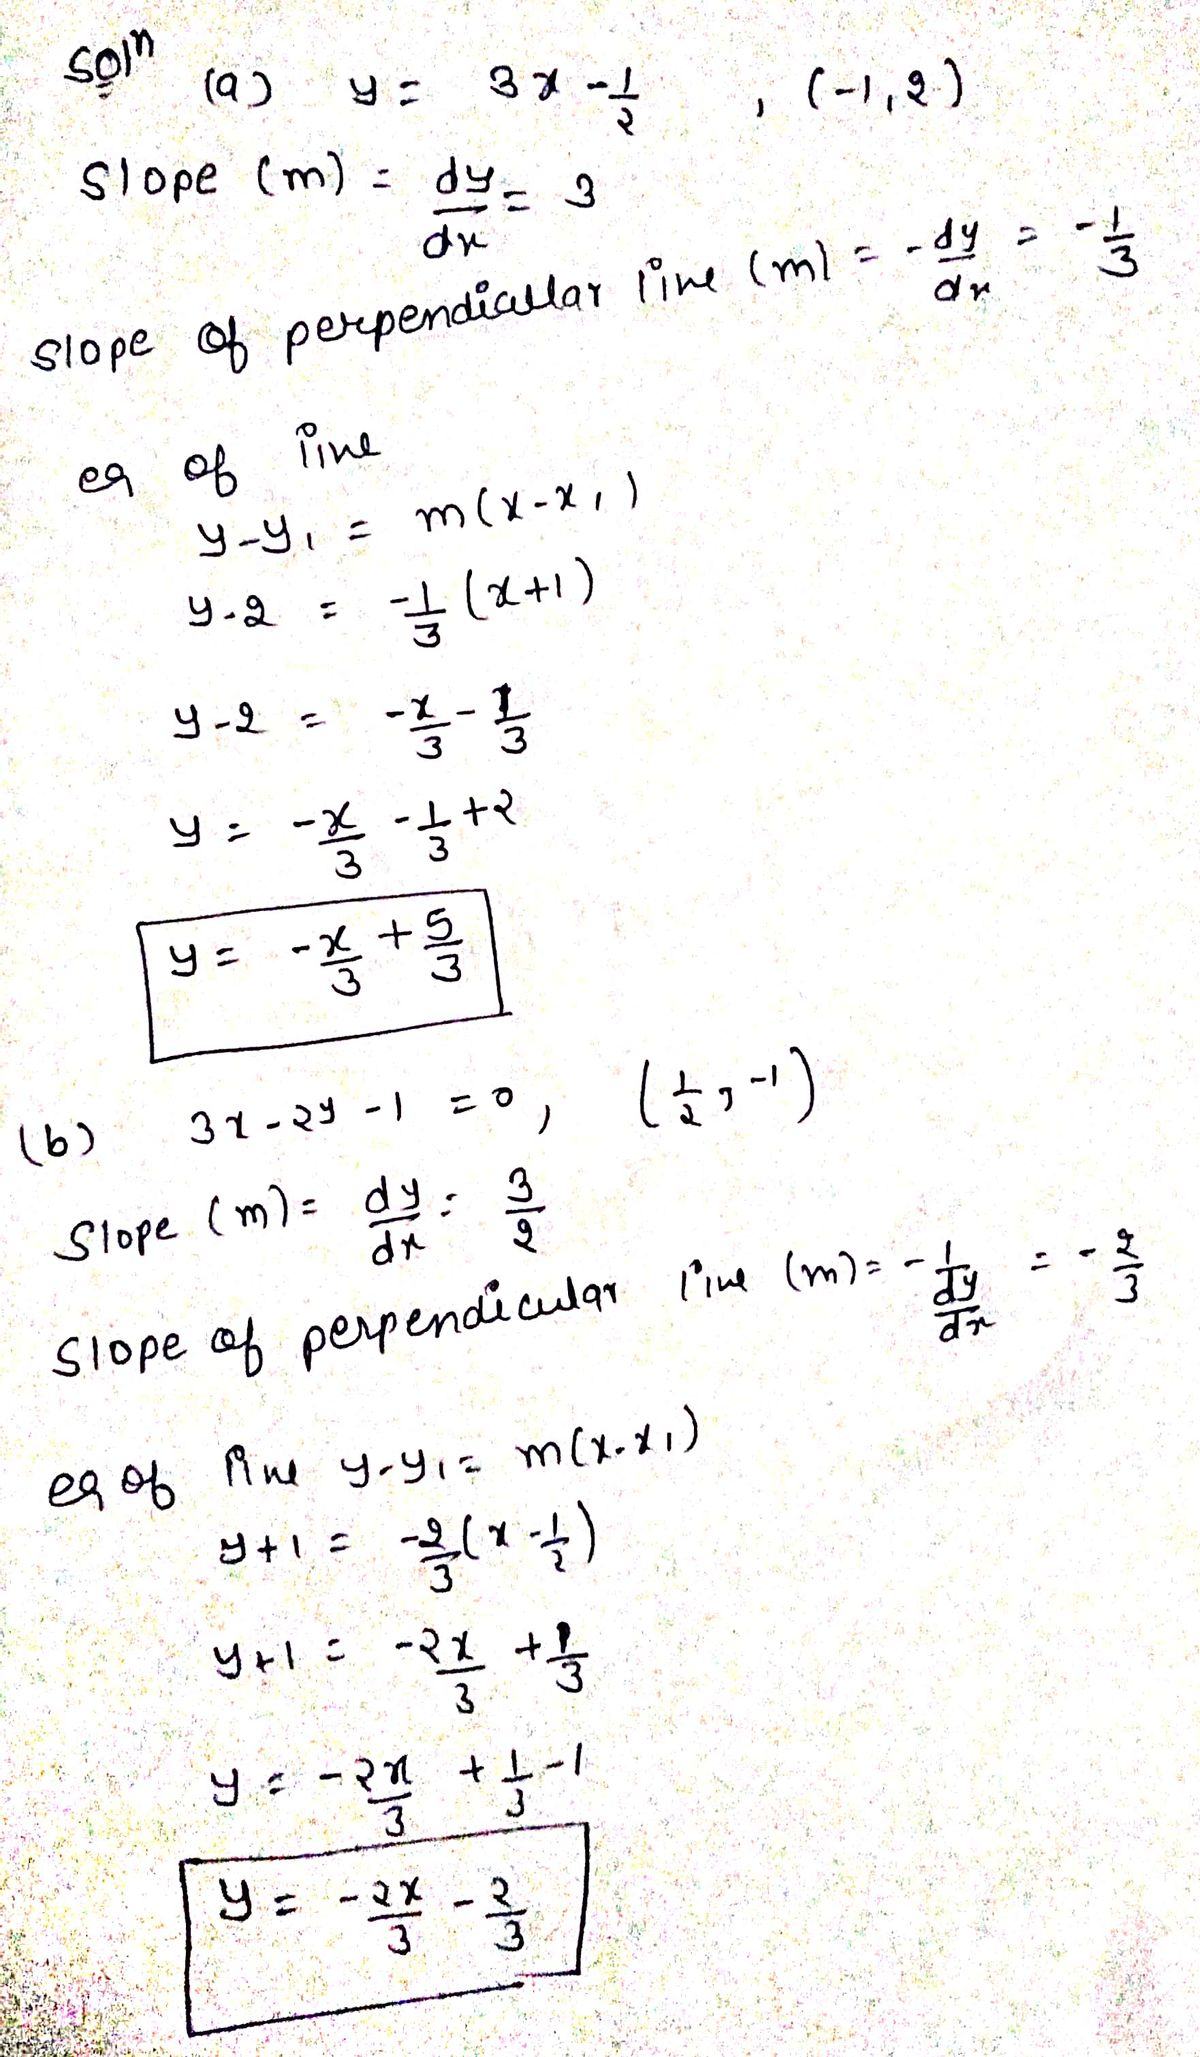 Soln
(a) y = 3x - 1/2 , (-1, 2)
Slope (m) = dy/dx = 3
Slope of perpendicullar line (m) = - dy/dx = - 1/3
eq of line
y - y1 = m(x - x1)
y - 2 = -1/3 (x + 1)
y - 2 = -x/3 - 1/3
y = -x/3 - 1/3 + 2
y = -x/3 + 5/3
(b) 3x - 2y - 1 = 0, (1/2, -1)
Slope (m) = dy/dx = 3/2
Slope of perpendicular line (m) = - 1/(dy/dx) = - 2/3
eq of line y - y1 = m(x - x1)
y + 1 = -2/3 (x - 1/2)
y + 1 = -2x/3 + 1/3
y = -2x/3 + 1/3 - 1
y = -2x/3 - 2/3